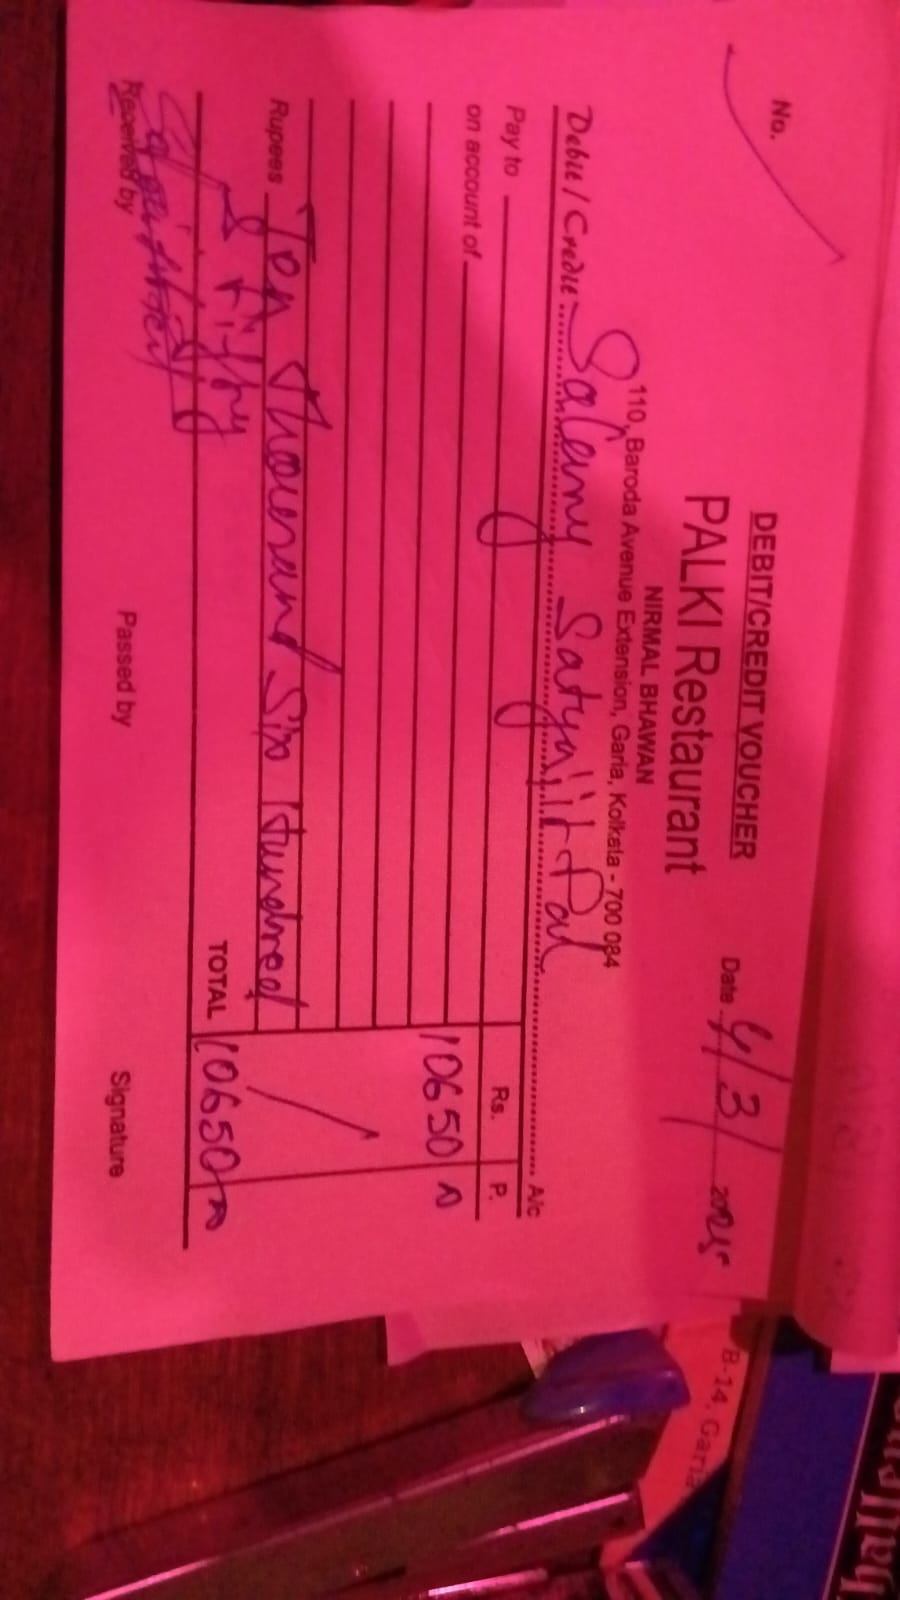 No.
DEBIT/CREDIT VOUCHER
PALKI Restaurant
Date 4/3/2025
NIRMAL BHAWAN
110, Baroda Avenue Extension, Garia, Kolkata - 700 084
Debit / Credit Salary Satyajit Pal A/c
Pay to
Rs. P.
on account of
10650
Rupees Ten thousand Six Hundred
& Fifty
TOTAL 10650
Received by Passed by Signature
B-14, Garia